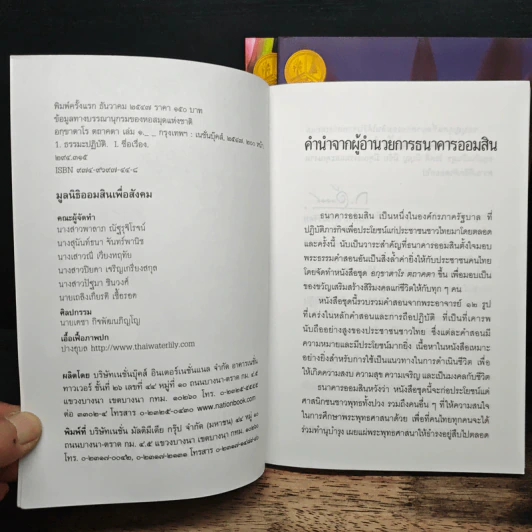 พิมพ์ครั้งแรก ธันวาคม ๒๕๔๗ ราคา ๑๕๐ บาท
ข้อมูลทางบรรณานุกรมของหอสมุดแห่งชาติ
อกฺขาตาโร ตถาคตา เล่ม ๑._ _ กรุงเทพฯ : เนชั่นบุ๊คส์, ๒๕๔๗. ๒๐๐ หน้า.
1. ธรรมะปฏิบัติ. 1. ชื่อเรื่อง.
๒๙๔.๓๑๕
ISBN ๙๗๔-๙๖๙๗-๔๔-๘
มูลนิธิออมสินเพื่อสังคม
คณะผู้จัดทำ
นางสาวพาลาภ ณัฐรุจิโรชน์
นางสุนันท์ธนา จันทร์พานิช
นางเสาวณี เวียงหฤทัย
นางสาวปิยดา เจริญเกรียงสกุล
นางสาวปัฐมา ชินวงศ์
นายเถลิงเกียรติ เชื้อรอต
ศิลปกรรม
นายเดชา กิจพัฒนภิญโญ
เอื้อเฟื้อภาพปก
ปางอุบล http://www.thaiwaterlily.com
ผลิตโดย บริษัทเนชั่นบุ๊คส์ อินเตอร์เนชั่นแนล จำกัด อาคารเนชั่น
ทาวเวอร์ ชั้นที่ ๒๖ เลขที่ ๔๔ หมู่ที่ ๑๐ ถนนบางนา-ตราด กม. ๔.๕
แขวงบางนา เขตบางนา กทม. ๑๐๒๖๐
ต่อ ๓๑๐๒-๔ โทรสาร www.nationbook.com
พิมพ์ที่ บริษัทเนชั่น มัลติมีเดีย กรุ๊ป จำกัด (มหาชน)
ถนนบางนา-ตราด กม. ๔.๕ แขวงบางนา เขตบางนา กทม.
โทร. โทรสาร
คำนำจากผู้อำนวยการธนาคารออมสิน
ธนาคารออมสิน เป็นหนึ่งในองค์กรภาครัฐบาล ที่
ปฏิบัติภารกิจเพื่อประโยชน์แก่ประชาชนชาวไทยมาโดยตลอด
และครั้งนี้ นับเป็นวาระสำคัญที่ธนาคารออมสินตั้งใจมอบ
พระธรรมคำสอนอันเป็นสิ่งล้ำค่ายิ่งให้กับประชาชนคนไทย
โดยจัดทำหนังสือชุด อกฺขาตาโร ตถาคตา ขึ้น เพื่อมอบเป็น
ของขวัญเสริมสร้างสิริมงคลแก่ชีวิตให้กับทุก ๆ คน
หนังสือชุดนี้รวบรวมคำสอนจากพระอาจารย์ ๑๒ รูป
ที่เคร่งในหลักคำสอนและการถือปฏิบัติ ที่เป็นที่เคารพ
นับถืออย่างสูงของประชาชนชาวไทย ซึ่งแต่ละคำสอนมี
ความหมายและมีประโยชน์มากยิ่ง เนื้อหาในหนังสือเหมาะ
อย่างยิ่งสำหรับการใช้เป็นแนวทางในการดำเนินชีวิต เพื่อ
ให้เกิดความสงบ ความสุข ความเจริญ และเป็นมงคลกับชีวิต
ธนาคารออมสินหวังว่า หนังสือชุดนี้จะก่อประโยชน์แก่
ศาสนิกชนชาวพุทธทั้งปวง รวมถึงคนอื่น ๆ ที่ให้ความสนใจ
ในการศึกษาพระพุทธศาสนาด้วย เพื่อที่คนไทยทุกคนจะได้
ร่วมทำนุบำรุง เผยแผ่พระพุทธศาสนาให้ธำรงอยู่สืบไปตลอด